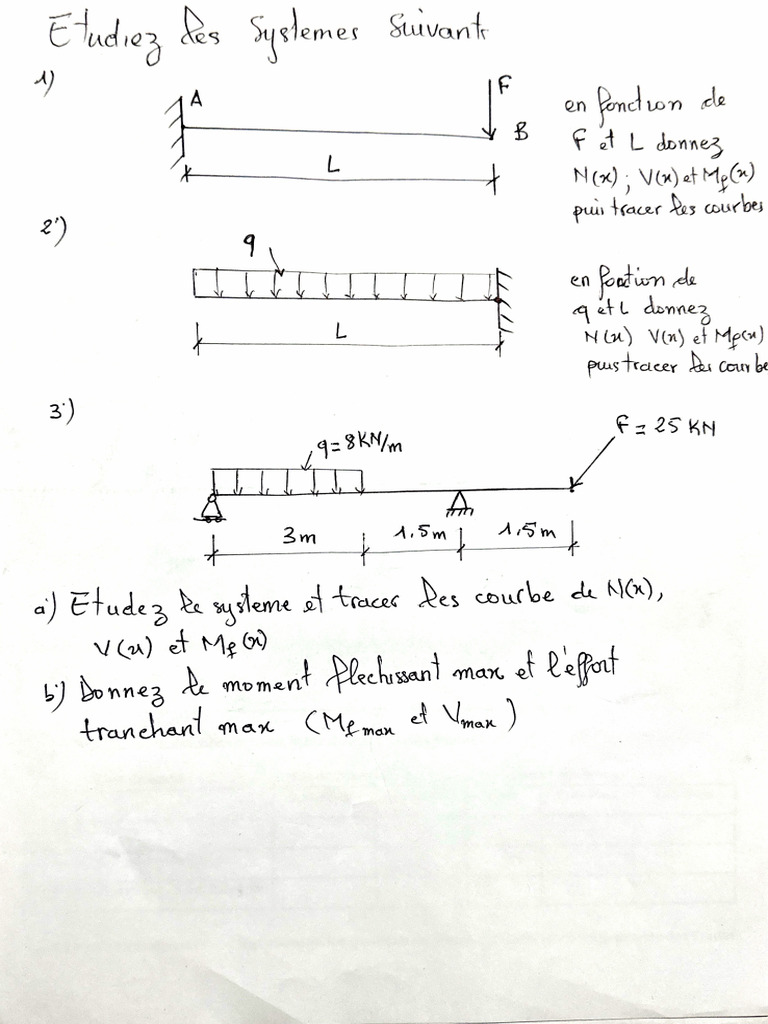 Etudiez les systemes suivants
1)
A
F
B
L
en fonction de
F et L donnez
N(x) ; V(x) et Mf(x)
puis tracer les courbes
2)
q
L
en foction de
q et L donnez
N(x) V(x) et Mf(x)
puis tracer les courbe
3)
q = 8 KN/m
F = 25 KN
3m
1,5m
1,5m
a) Etudez le systeme et tracer les courbe de N(x),
V(x) et Mf(x)
b) Donnez le moment flechissant max et l'éffort
tranchant max (Mf max et Vmax)